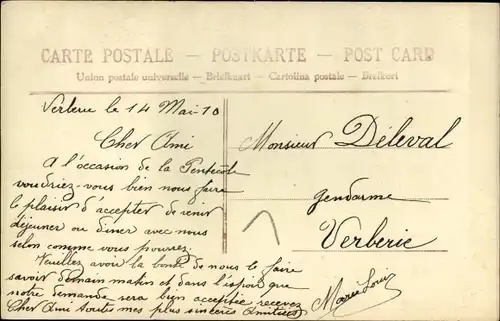 CARTE POSTALE — POSTKARTE — POST CARD
Union postale universelle — Briefkaart — Cartolina postale — Brefkort
Verberie le 14 Mai 10
Cher Ami
A l'occasion de la Pentecôte
voudriez-vous bien nous faire
le plaisir d'accepter de venir
déjeuner ou diner avec nous
selon comme vous pourrez.
Veuillez avoir la bonté de nous le faire
savoir demain matin et dans l'espoir que
notre demande sera bien acceptée recevez
Cher Ami toutes mes plus sincères Amitiés
Marie Louise
Monsieur Déleval
gendarme
Verberie